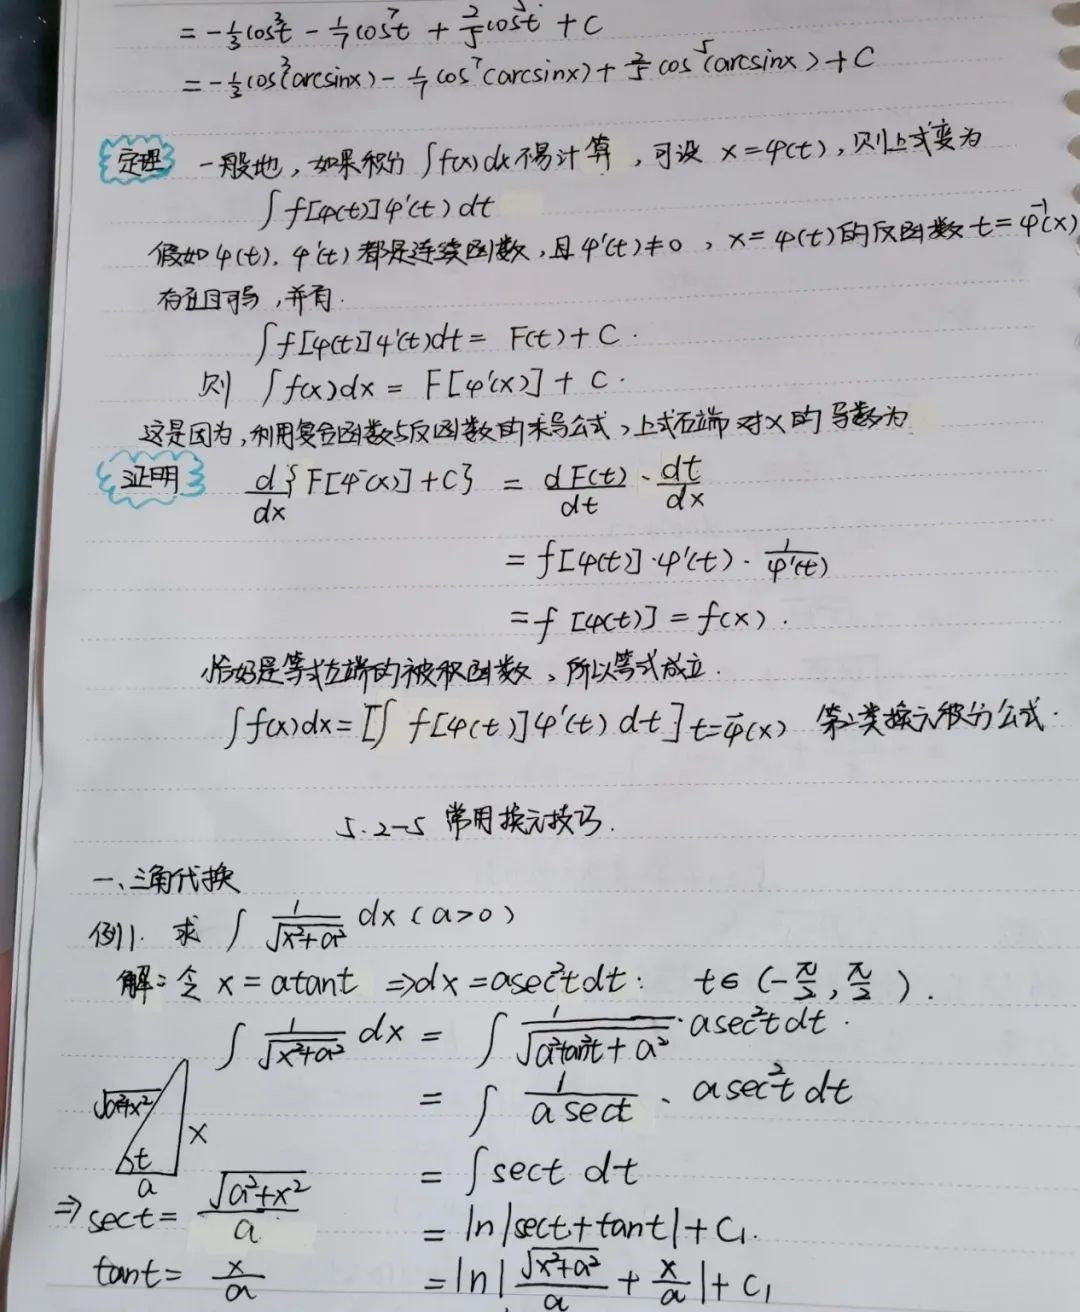 = -1/3 cos³t - 1/7 cos⁷t + 2/5 cos⁵t + C
= -1/3 cos³(arcsinx) - 1/7 cos⁷(arcsinx) + 2/5 cos⁵(arcsinx) + C
定理 一般地，如果积分 ∫f(x)dx 不易计算，可设 x=φ(t)，则上式变为
∫f[φ(t)]φ'(t)dt
假如φ(t)，φ'(t)都是连续函数，且φ'(t)≠0，x=φ(t)的反函数t=φ⁻¹(x)
存在且可导，并有.
∫f[φ(t)]φ'(t)dt = F(t)+C.
则 ∫f(x)dx = F[φ'(x)] + C.
这是因为，利用复合函数与反函数的求导公式，上式右端对x的导数为
证明 d/dx {F[φ⁻(x)]+C} = dF(t)/dt · dt/dx
= f[φ(t)]·φ'(t)· 1/φ'(t)
= f[φ(t)] = f(x).
恰好是等式左端的被积函数，所以等式成立.
∫f(x)dx = [∫f[φ(t)]φ'(t)dt] t=φ⁻(x) 第二类换元积分公式.
5.2-5 常用换元技巧.
一、三角代换
例1. 求 ∫ 1/√(x²+a²) dx (a>0)
解：令 x=atant ⇒dx=asec²tdt: t∈(-π/2, π/2).
∫ 1/√(x²+a²) dx = ∫ 1/√(a²tan²t+a²) · asec²tdt.
= ∫ 1/(a sect) · asec²t dt
√(a²+x²) x t a
= ∫sect dt
⇒ sect = √(a²+x²)/a
= ln|sect+tant|+C₁.
tant = x/a
= ln|√(x²+a²)/a + x/a|+C₁